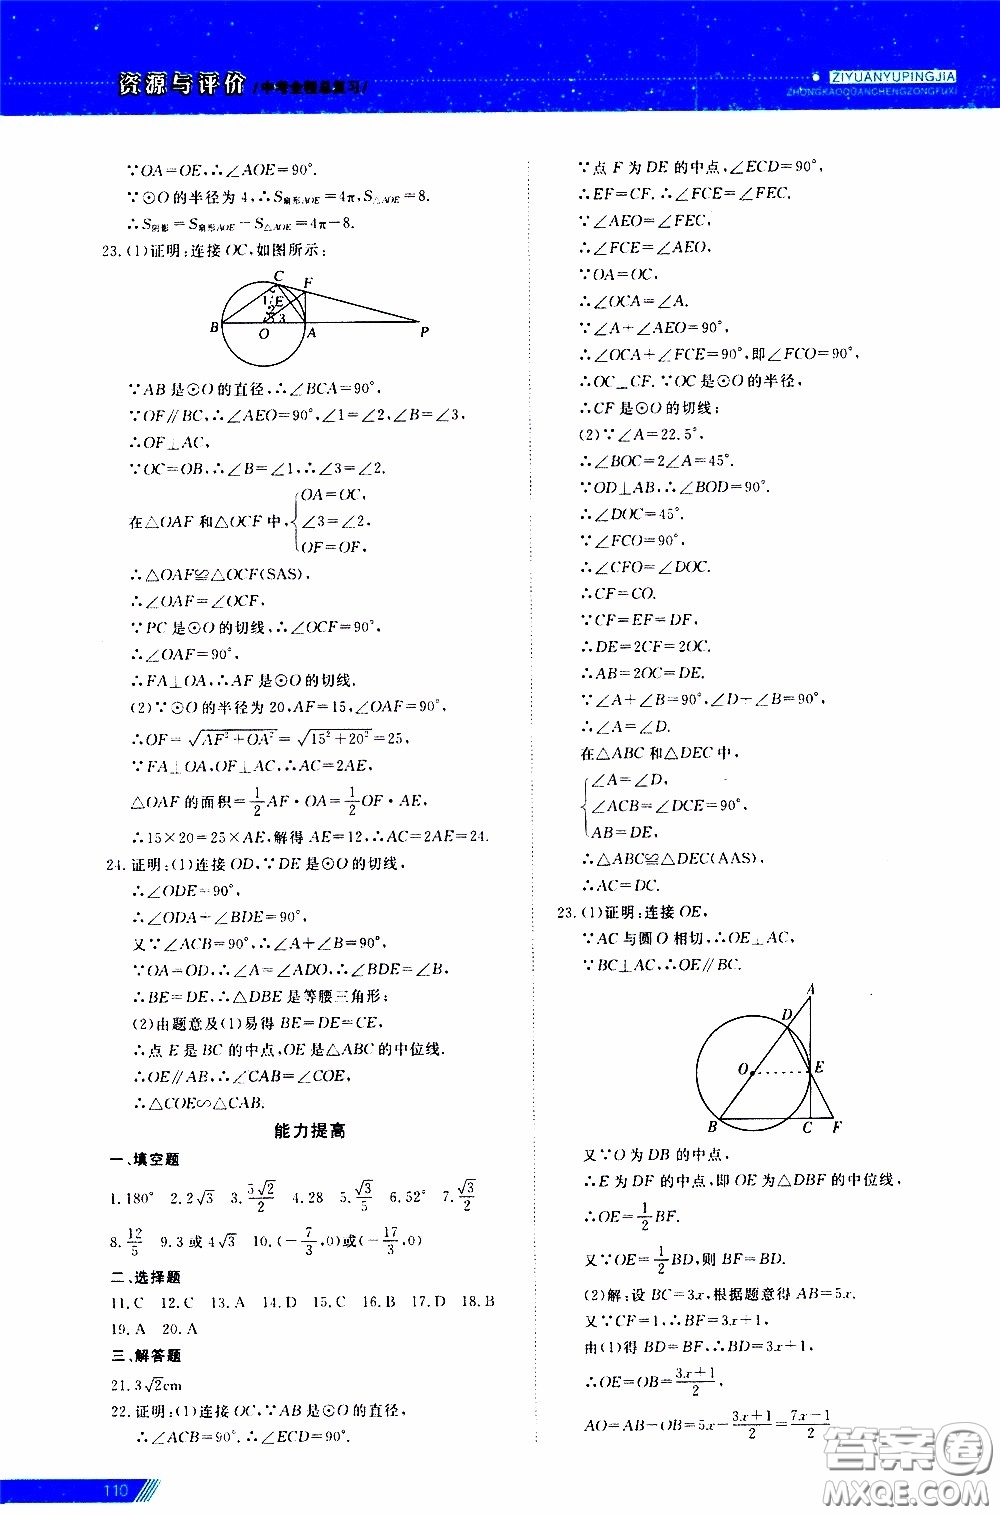 资源与评价 /中考全程总复习/
ZIYUANYUPINGJIA
ZHONGKAOQUANCHENGZONGFUXI
∵OA=OE,∴∠AOE=90°.
∵⊙O的半径为4,∴S扇形AOE=4π,S△AOE=8.
∴S阴影=S扇形AOE-S△AOE=4π-8.
23.(1)证明:连接OC,如图所示:
C F
1 E
2
3
B O A P
∵AB是⊙O的直径,∴∠BCA=90°.
∵OF∥BC,∴∠AEO=90°,∠1=∠2,∠B=∠3,
∴OF⊥AC,
∵OC=OB,∴∠B=∠1,∴∠3=∠2.
在△OAF和△OCF中,{OA=OC,
∠3=∠2,
OF=OF,
∴△OAF≌△OCF(SAS),
∴∠OAF=∠OCF,
∵PC是⊙O的切线,∴∠OCF=90°,
∴∠OAF=90°,
∴FA⊥OA,∴AF是⊙O的切线.
(2)∵⊙O的半径为20,AF=15,∠OAF=90°,
∴OF=√(AF²+OA²)=√(15²+20²)=25,
∵FA⊥OA,OF⊥AC,∴AC=2AE,
△OAF的面积=1/2 AF·OA=1/2 OF·AE,
∴15×20=25×AE,解得AE=12,∴AC=2AE=24.
24.证明:(1)连接OD,∵DE是⊙O的切线,
∴∠ODE=90°,
∴∠ODA+∠BDE=90°,
又∵∠ACB=90°,∴∠A+∠B=90°,
∵OA=OD,∴∠A=∠ADO,∴∠BDE=∠B,
∴BE=DE,∴△DBE是等腰三角形;
(2)由题意及(1)易得BE=DE=CE,
∴点E是BC的中点,OE是△ABC的中位线.
∴OE∥AB,∴∠CAB=∠COE,
∴△COE∽△CAB.
能力提高
一、填空题
1.180° 2.2√3 3.5√2/2 4.28 5.√3/5 6.52° 7.√3/2
8.12/5 9.3或4√3 10.(-7/3,0)或(-17/3,0)
二、选择题
11.C 12.C 13.A 14.D 15.C 16.B 17.D 18.B
19.A 20.A
三、解答题
21.3√2cm
22.证明:(1)连接OC,∵AB是⊙O的直径,
∴∠ACB=90°.∴∠ECD=90°.
∵点F为DE的中点,∠ECD=90°,
∴EF=CF.∴∠FCE=∠FEC.
∵∠AEO=∠FEC,
∴∠FCE=∠AEO,
∵OA=OC,
∴∠OCA=∠A.
∵∠A+∠AEO=90°,
∴∠OCA+∠FCE=90°,即∠FCO=90°.
∴OC⊥CF.∵OC是⊙O的半径,
∴CF是⊙O的切线;
(2)∵∠A=22.5°,
∴∠BOC=2∠A=45°.
∵OD⊥AB,∴∠BOD=90°.
∴∠DOC=45°.
∵∠FCO=90°,
∴∠CFO=∠DOC.
∴CF=CO.
∵CF=EF=DF,
∴DE=2CF=2OC.
∴AB=2OC=DE.
∵∠A+∠B=90°,∠D+∠B=90°,
∴∠A=∠D.
在△ABC和△DEC中,
{∠A=∠D,
∠ACB=∠DCE=90°,
AB=DE,
∴△ABC≌△DEC(AAS),
∴AC=DC.
23.(1)证明:连接OE,
∵AC与圆O相切,∴OE⊥AC,
∵BC⊥AC,∴OE∥BC.
A
D
O E
B C F
又∵O为DB的中点,
∴E为DF的中点,即OE为△DBF的中位线,
∴OE=1/2 BF.
又∵OE=1/2 BD,则BF=BD.
(2)解:设BC=3x,根据题意得AB=5x.
又∵CF=1,∴BF=3x+1,
由(1)得BD=BF,∴BD=3x+1,
∴OE=OB=(3x+1)/2,
AO=AB-OB=5x-(3x+1)/2=(7x-1)/2
110
答案圈
MXQE.COM